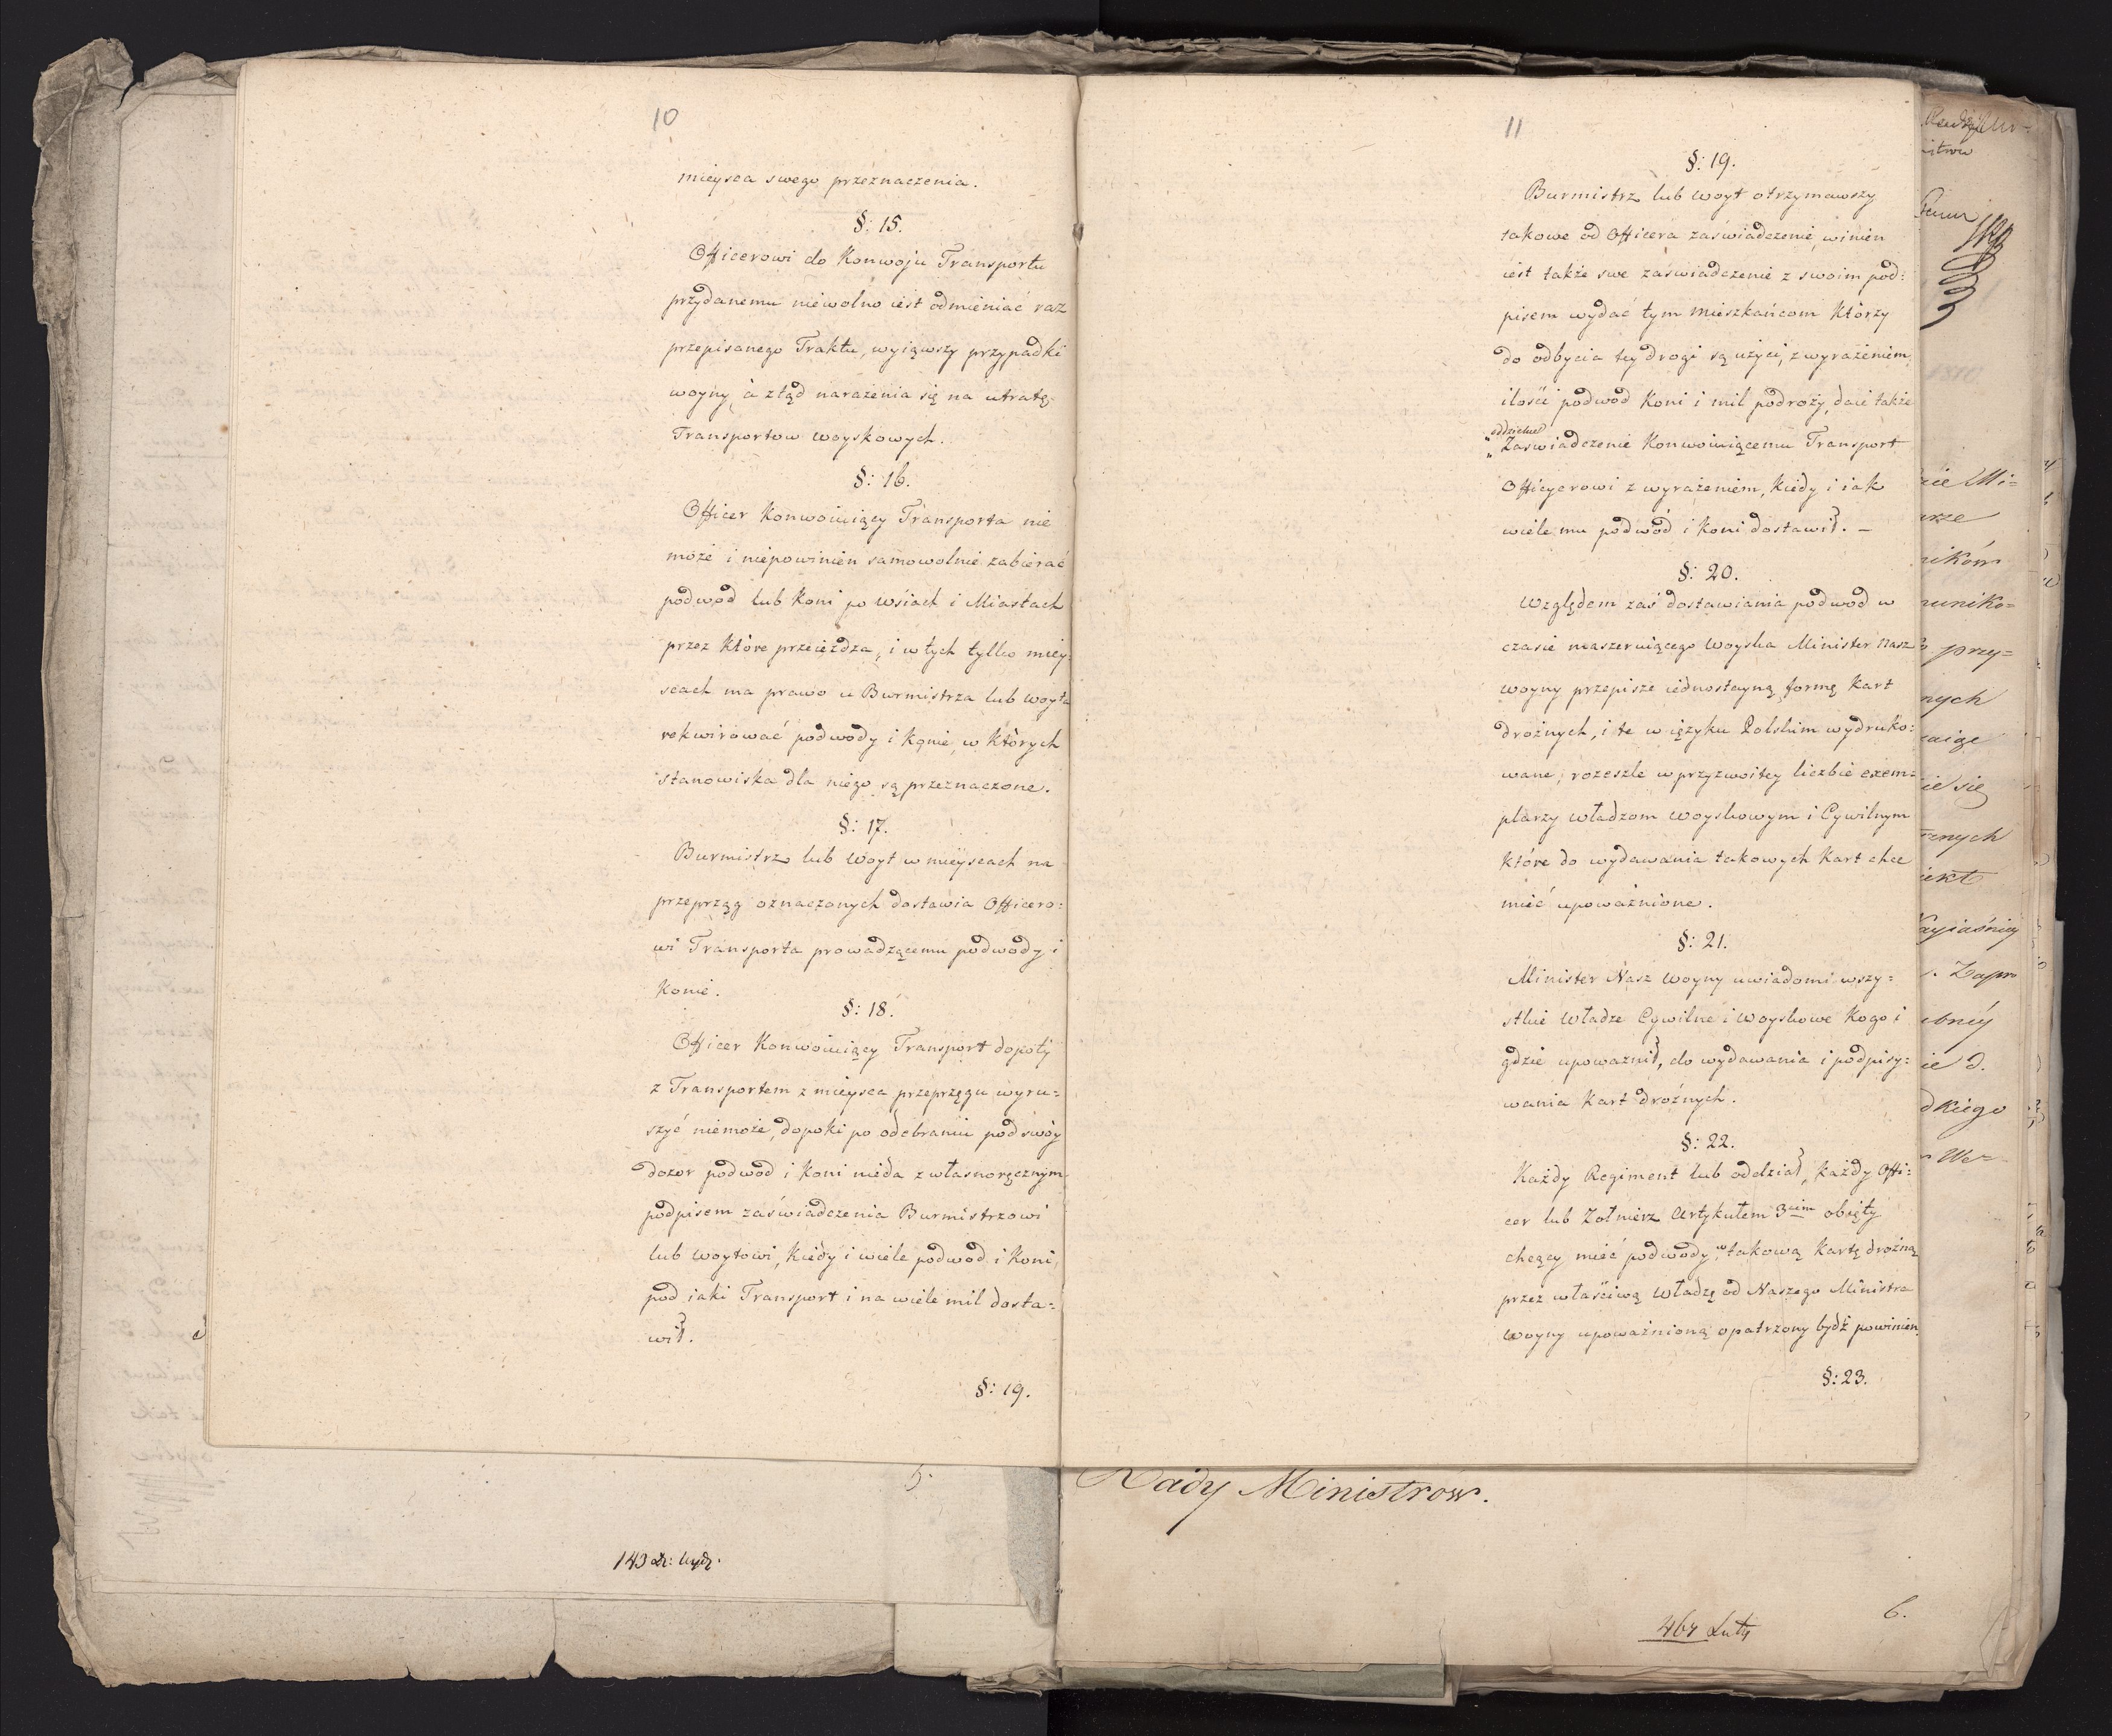 10
mieysca swego przeznaczenia.
§: 15.
Officerowi do Konwoju Transportu
przydanemu niewolno iest odmieniać raz
przepisanego Traktu, wyiąwszy przypadki
woyny, à ztąd narażenia się na utratę
Transportow woyskowych.
§: 16.
Officer Konwoiuiący Transporta nie
może i niepowinien samowolnie zabierać
podwod lub Koni po wsiach i Miastach
przez które przeieżdza, i w tych tylko miey:
scach ma prawo u Burmistrza lub woyta
rekwirować podwody i Konie, w których
stanowiska dla niego są przeznaczone.
§: 17.
Burmistrz lub Woyt w mieyscach na
przeprząg oznaczonych dostawia Officero:
wi Transporta prowadzącemu podwody i
Konie.
§: 18.
Officer Konwoiuiący Transport dopoty
z Transportem z mieysca przeprzęgu wyru=
szyć niemoże, dopoki po odebraniu pod swóy
dozor podwod i Koni nieda z własnoręcznym
podpisem zaświadczenia Burmistrzowi
lub woytowi, Kiedy i wiele podwod i Koni,
pod iaki Transport i na wiele mil dosta=
wił.
§: 19.
11
§: 19.
Burmistrz lub woyt otrzymawszy
takowe od Officera zaświadczenie, winien
iest także swe zaświadczenie z swoim pod:
pisem wydać tym mieszkańcom Którzy
do odbycia tey drogi są użyci, z wyrażeniem
ilości podwod Koni i mil podroży, daie także
oddzielne
" Zaswiadczenie Konwoiuiącemu Transport
Officyerowi z wyrażeniem, Kiedy i iak
wiele mu podwód i Koni dostawił. —
§: 20.
Względem zaś dostawiania podwod w
czasie maszeruiącego Woyska Minister Nasz
woyny przepisze iednostayną formę Kart
drożnych, i te w ięzyku Polskim wydruko:
wane, rozeszle w przyzwoitey liczbie exem=
plarzy władzom woyskowym i Cywilnym
które do wydawania takowych Kart chce
mieć upoważnione.
§: 21.
Minister Nasz Woyny uwiadomi wszy=
stkie Władze Cywilne i Woyskowe Kogo i
gdzie upoważnił, do wydawania i podpisy=
wania Kart drożnych.
§: 22.
Każdy Regiment lub oddział, każdy Offi:
cer lub Zołnierz Artykułem 3cim obięty
chcący mieć podwody, w takową Kartę drożną
przez właściwą Władzę od Naszego Ministra
Woyny upoważnioną opatrzony bydź powinien.
§: 23.
Rady Ministrow.
5.
6.